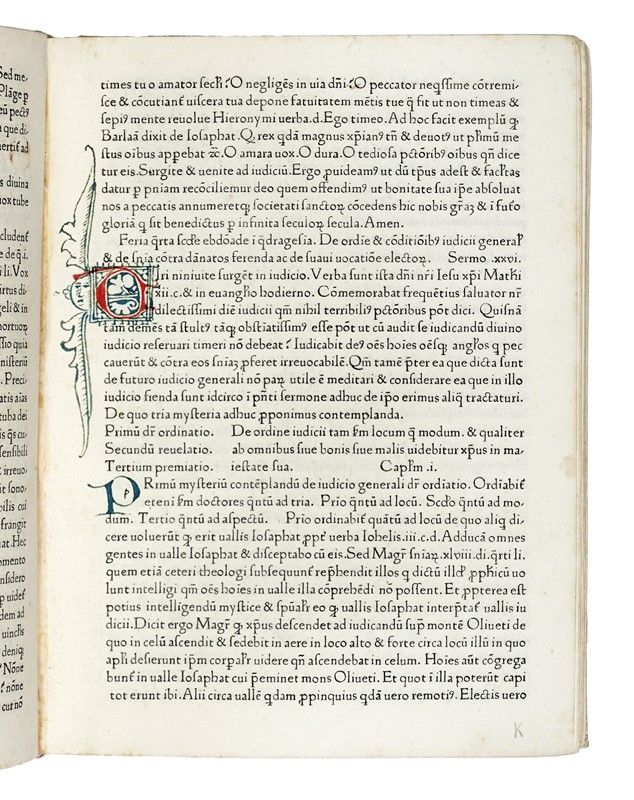 times tu o amator secłi? O negligēs in uia dñi? O peccator neqssime cōtremi-
sce & cōcutiant̄ uiscera tua depone fatuitatem mētis tue ꝙ fit ut non timeas &
sepiꝰ mente reuolue Hieronymi uerba. d. Ego timeo. Ad hoc facit exemplū ꝙ
Barlaā dixit de Iosaphat. Q. rex qdā magnus xp̄ianꝰ tñ & deuotꝰ ut prīmū me
stus oibus appebat ꝛc̄. O amara uox. O dura. O tediosa pctōribꝰ oibus qñ dice
tur eis. Surgite & uenite ad iudiciū. Ergo ꝓuideamꝰ ut dū tp̄us adest & facłtas
datur p pniam recōciliemur deo quem offendimꝰ ut bonitate sua ip̄e absoluat
nos a peccatis annumeretqꝫ societati sanctoꝝ cōcedens hic nobis grāꝫ & ī fut̄o
gloriā q̄ sit benedictus p infinita seculoꝝ secula. Amen.
Feria q̄rta scd̄e ebdoāde ī qdragesīa. De ordīe & cōditiōibꝰ iudicii general̄
& de snīa cōtra dānatos ferenda ac de suaui uocatiōe electoꝝ. Sermo .xxvi.
iri niniuite surgēt in iudicio. Verba sunt ista dñi nr̄i Iesu xp̄i Matħi
xii. c. & in euanglio hodierno. Cōmemorabat frequētius saluator nr̄
dilectissimi diē iudicii qm̄ nihil terribiliꝰ pctōribus pōt dici. Quisnā
tam demēs tā stultꝰ tāqꝫ obstīatissimꝰ esse pōt ut cū audit se iudicandū diuino
iudicio reseruari timeri nō debeat? Iudicabit deꝰ oēs hoies oēsqꝫ angłos q pec
cauerūt & cōtra eos snīaꝫ ꝓferet irreuocabilē. Qm̄ tamē p̄ter ea que dicta sunt
de futuro iudicio generali nō paꝝ utile ē meditari & considerare ea que in illo
iudicio fienda sunt idcirco ī pn̄ti sermone adhuc de ip̄o erimus aliq̄ tractaturi.
De quo tria mysteria adhuc ꝓponimus contemplanda.
Primū dr̄ ordinatio. De ordine iudicii tam ꝼm locum q̄ modum. & qualiter
Secundū reuelatio. ab omnibus siue bonis siue malis uidebitur xp̄us in ma-
Tertium premiatio. iestate sua. Capłm .i.
PRimū mysteriū contēplandū de iudicio generali dr̄ ordiatio. Ordīabit̄
p eteni ꝼm doctores qntū ad tria. Prīo qntū ad locū. Scd̄o qntū ad mo-
dum. Tertio qntū ad aspectū. Prīo ordinabit̄ quātū ad locū de quo aliq di-
cere uoluerūt ꝙ erit uallis Iosaphat ꝓpt̄ uerba Iohelis. iii. c. d. Adducā omnes
gentes in ualle Iosaphat & disceptabo cū eis. Sed Magr̄ snīaꝝ .xlviii. di. q̄rti li.
quem etiā ceteri theologi subsequunt̄ rep̄hendit illos q dictū illđ ꝓpħicū uo
lunt intelligi qm̄ oēs hoies in ualle illa cōprehēdi nō possent. Et ꝓpterea est
potius intelligendū mystice & spūalr̄ eo ꝙ uallis Iosaphat interp̄tat̄ uallis iu
dicii. Dicit ergo Magr̄ ꝙ xp̄us descendet ad iudicandū sup̄ montē Oliueti de
quo in celū ascendit & sedebit in aere in loco alto & forte circa locū illū in quo
apłi desierunt ip̄m corpałr uidere qn̄ ascendebat in celum. Hoies aūt cōgrega
bunt̄ in ualle Iosaphat cui p̄eminet mons Oliueti. Et quot ī illa poterūt capi
tot erunt ibi. Alii circa uallē qdam ꝓpinquius qdā uero remotiꝰ. Electis uero
K